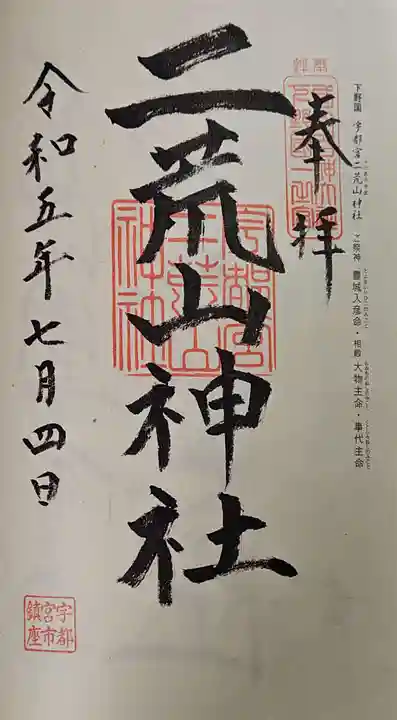 下野國 宇都宮二荒山神社 ご祭神 豊城入彦命・相殿 大物主命・事代主命
奉拝
二荒山神社
宇都宮
二荒山
神社
令和五年七月四日
宇都
宮市
鎮座